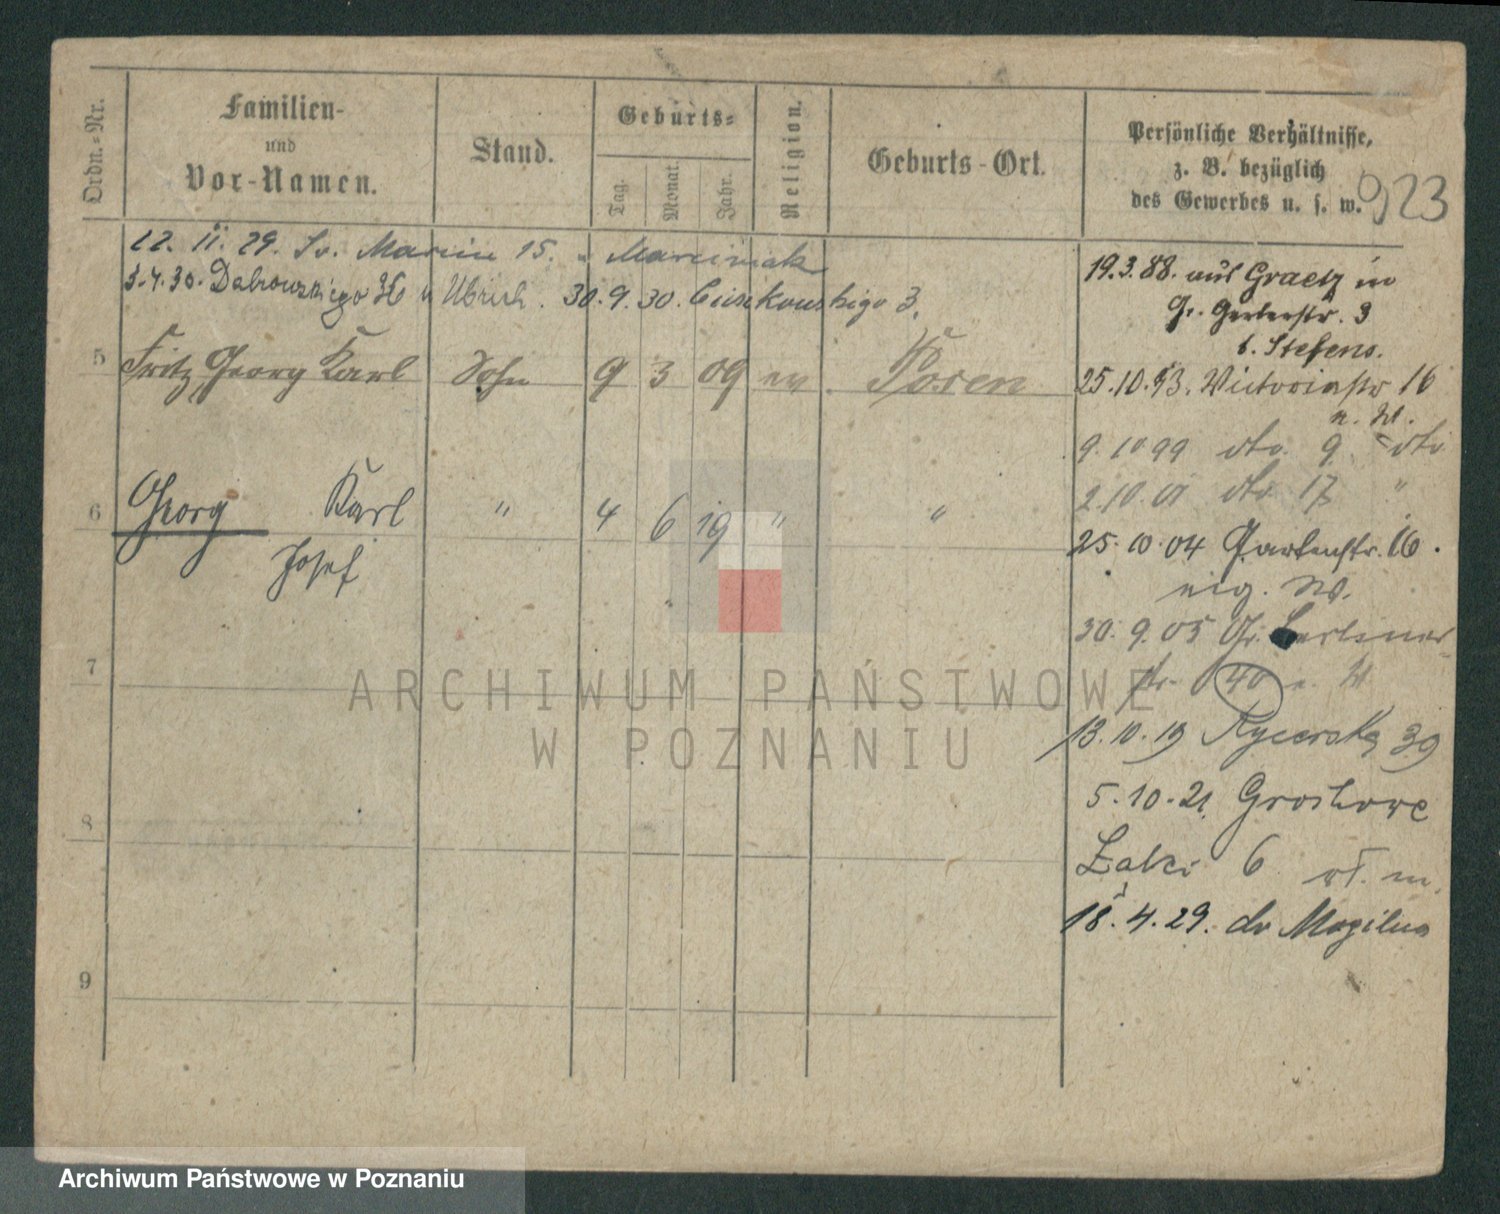 Ordn.-Nr.
Familien-
und
Vor-Namen.
Stand.
Geburts-
Tag.
Monat.
Jahr.
Religion.
Geburts-Ort.
Persönliche Verhältnisse,
z. B. bezüglich
des Gewerbes u. s. w.
923
22. 11. 29. Sv. Marcin 15. u Marciniak
3.4.30. Dabrowskiego 36 u Ulrich. 30.9.30. 3.
5 Fritz Georg Karl Sohn 9 3 09 ev. Posen
6 Georg Karl " 4 6 19 " "
Josef
7
8
9
19.3.88. aus Graetz in
Gr. Gerberstr. 3
b. Stefens.
25.10.93. Victoriastr 16
n. W.
9.10 99 dto. 9. dto
2.10.01 dto 17 "
25.10.04 Gartenstr. 16.
eig. W.
30.9.05 Gr. Berliner-
str. 40 e. W
13.10.19 Rycerska 39
5.10.21. Grochowe
Łąki 6 wł. m.
18.4.29. do Mogilna
ARCHIWUM PAŃSTWOWE
W POZNANIU
Archiwum Państwowe w Poznaniu